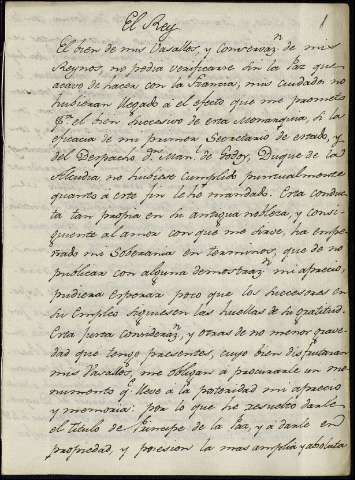 El Rey
1
El bien de mis Vasallos, y conservaz.n de mis
Reynos, no podia verificarse sin la Paz que
acavo de hacer con la Francia, mis cuidados no
hubieran llegado a el efecto que me prometo
p.a el bien succesivo de esta Monarquia, si la
eficacia de mi primer Secretario de estado, y
del Despacho d.n Man.l de Godoy, Duque de la
Alcudia, no hubiese cumplido puntualmente
quanto a este fin le he mandado. Esta conduc
ta tan propia en su antigua nobleza, y consi-
guiente al amor con que me sirve, ha empe
ñado mi Soberania en terminos, que de no
publicar con alguna demostraz.n mi aprecio,
pudiera esperar poco que los succesores en
su Empleo siguiesen las huellas de su gratitud.
Esta justa consideraz.n, y otras de no menor grave
dad que tengo presentes, cuyo bien disfrutaran
mis Vasallos, me obligan a procurarle un mo-
numento q.e lleve a la posteridad mi aprecio
y memoria: por lo que he resuelto darle
el titulo de Principe de la Paz, y a darle en
propiedad, y posesion la mas amplia y absoluta